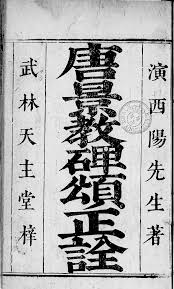 演西陽先生著
唐景教碑頌正詮
武林天主堂梓